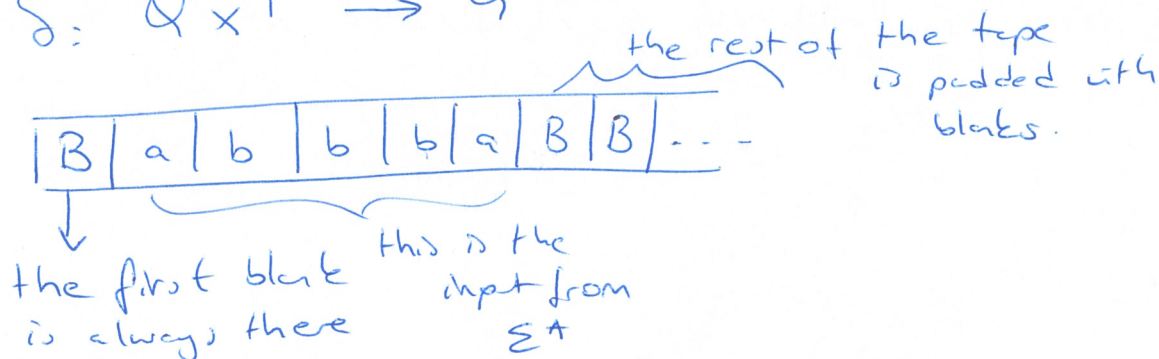 δ: Q ×
the rest of the tape
is padded with
blanks.
B a b b b a B B ...
the first blank
is always there
this is the
input from
Σ*